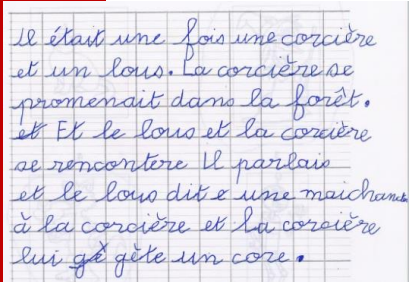 Il était une fois une corcière
et un lous. La corcière se
promenait dans la forêt.
et Et le lous et la corcière
se rencontere Il parlais
et le lous dit e une maichante
à la corcière et la corcière
lui gè gète un core.